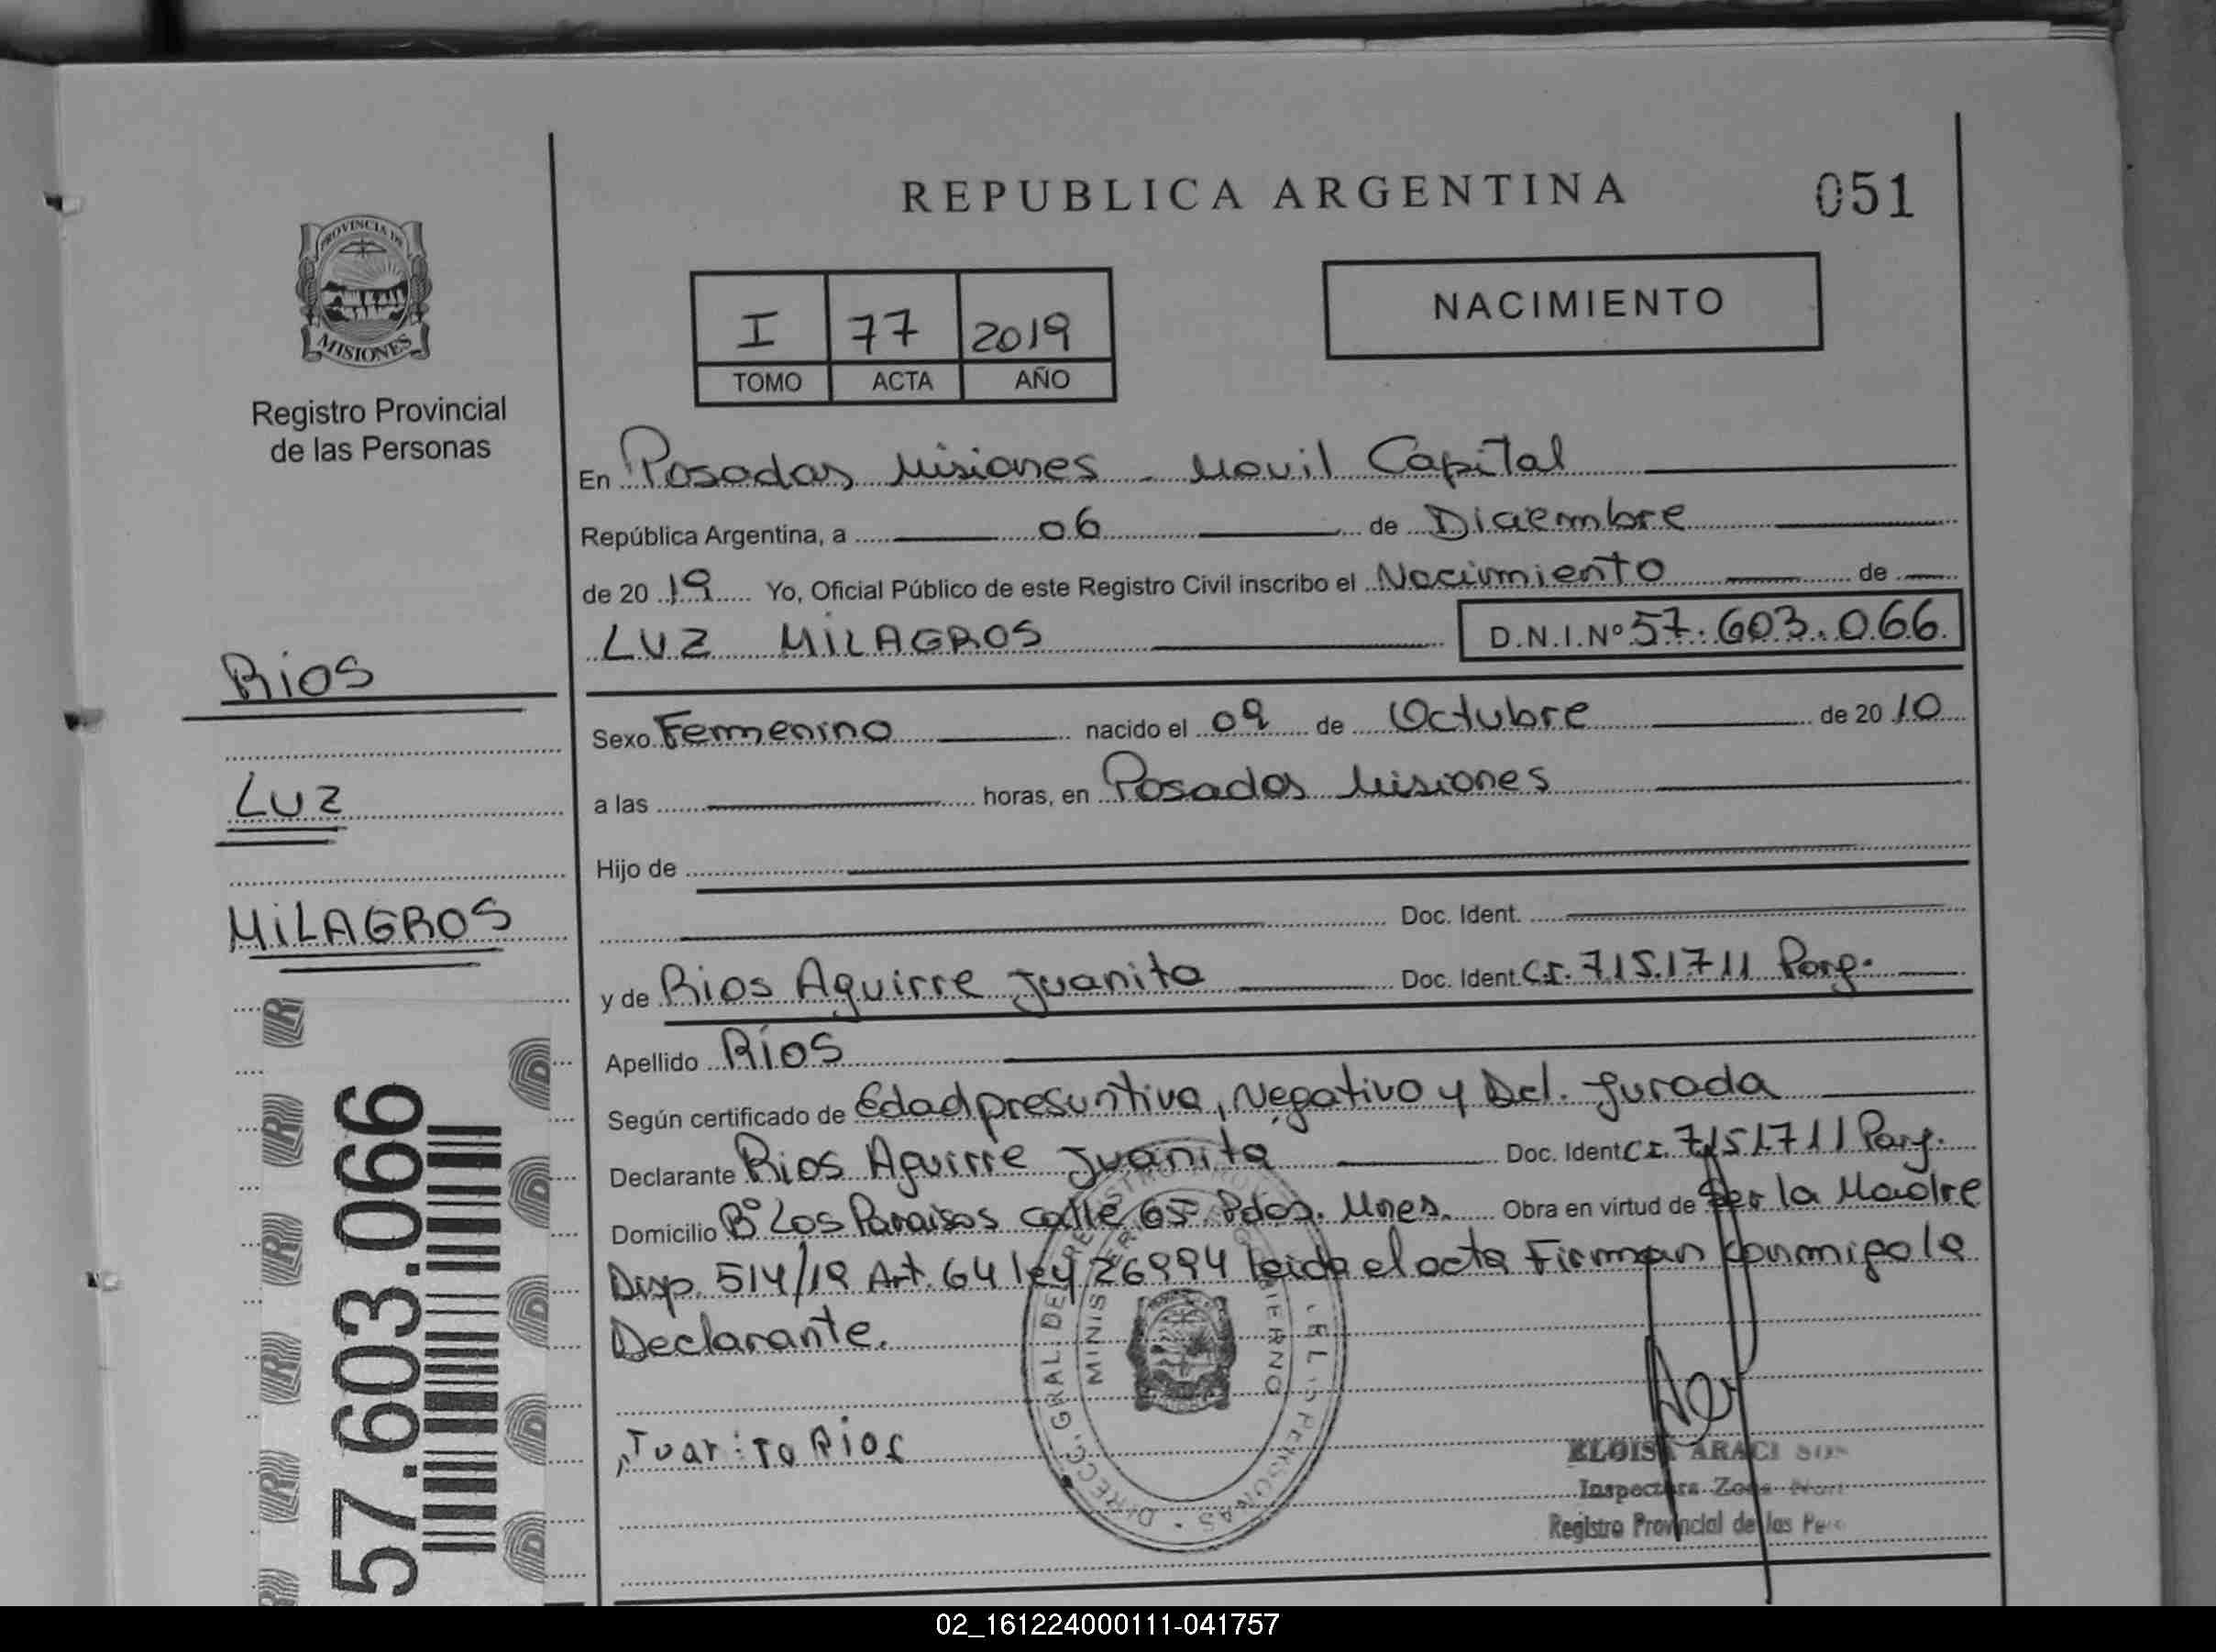 REPUBLICA ARGENTINA
051
PROVINCIA DE
MISIONES
Registro Provincial
de las Personas
I 77 2019
TOMO ACTA AÑO
NACIMIENTO
En Posadas Misiones - Movil Capital
República Argentina, a 06 de Diciembre
de 20 19 Yo, Oficial Público de este Registro Civil inscribo el Nacimiento de
LUZ MILAGROS D.N.I.Nº 57.603.066
Rios
LUZ
MILAGROS
Sexo Femenino nacido el 09 de Octubre de 20 10
a las horas, en Posadas Misiones
Hijo de
Doc. Ident.
y de Rios Aguirre Juanita Doc. Ident. C.I. 7.151.711 Parg.
Apellido Ríos
Según certificado de Edad presuntiva, Negativo y Dcl. Jurada
Declarante Rios Aguirre Juanita Doc. Ident C.I. 7151711 Parg.
Domicilio Bº Los Paraisos calle 65 Pdas. Mnes. Obra en virtud de Ser la Madre
Disp. 514/19 Art. 64 ley 26994 leida el acta Firman conmigo la
Declarante.
57.603.066
Juanita Rios
DIRECC. GRAL. DEL REGISTRO PROVINCIAL DE LAS PERSONAS
MINISTERIO GOBIERNO
ELOISA ARACI
Inspectora Zona
Registro Provincial de las
02_161224000111-041757